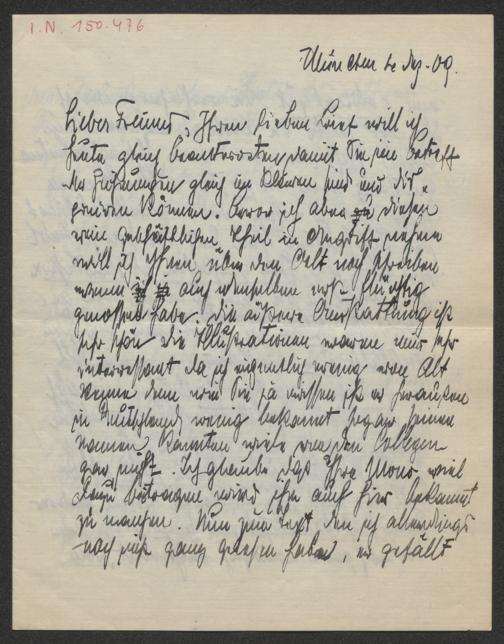 I.N. 150.476
München 2 Dez. 09.
Lieber Freund, Ihren lieben Brief will ich
heute gleich beantworten damit Sie wie betreff
der gleich im Klaren sind und dis-
poniren können. Bevor ich aber zu diesem
rein geschäftlichen Theil in Angriff nehme
will ich Ihnen über den Alt noch schreiben
wenn ich auch denselben erst flüchtig
genossen habe. Die äußere Ausstattung ist
sehr schön die Illustrationen waren mir sehr
interressant da ich eigentlich wenig von Alt
kenne denn wie Sie ja wissen ist er heraußen
in Deutschland wenig bekannt sogar seinen
Namen kannten viele von den Collegen
gar nicht. Ich glaube das Ihre Mono viel
dazu beitragen wird ihn auch hier bekannt
zu machen. Nun zum Text, den ich allerdings
noch nicht ganz gelesen habe, er gefällt